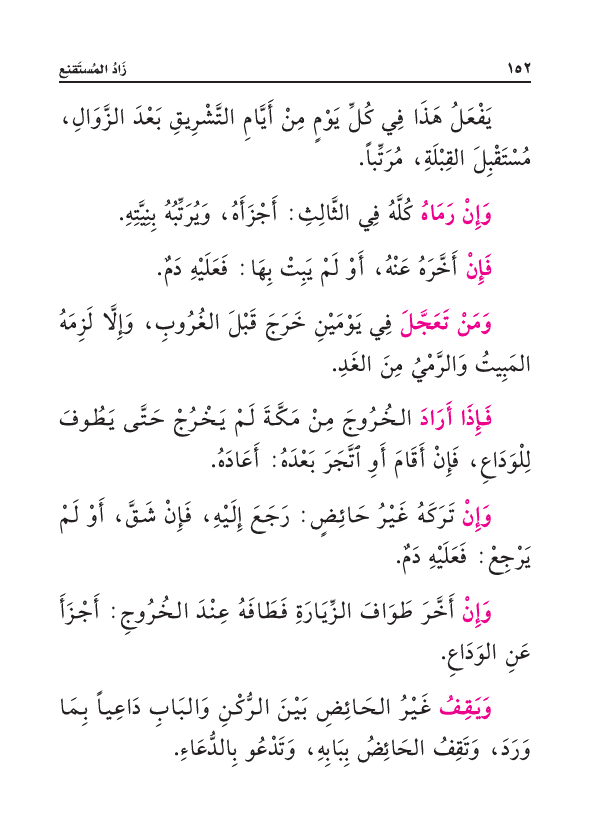 ١٥٢ زَادُ المُسْتَقْنِعِ
يَفْعَلُ هَذَا فِي كُلِّ يَوْمٍ مِنْ أَيَّامِ التَّشْرِيقِ بَعْدَ الزَّوَالِ،
مُسْتَقْبِلَ القِبْلَةِ، مُرَتِّباً.
وَإِنْ رَمَاهُ كُلَّهُ فِي الثَّالِثِ: أَجْزَأَهُ، وَيُرَتِّبُهُ بِنِيَّتِهِ.
فَإِنْ أَخَّرَهُ عَنْهُ، أَوْ لَمْ يَبِتْ بِهَا: فَعَلَيْهِ دَمٌ.
وَمَنْ تَعَجَّلَ فِي يَوْمَيْنِ خَرَجَ قَبْلَ الغُرُوبِ، وَإِلَّا لَزِمَهُ
المَبِيتُ وَالرَّمْيُ مِنَ الغَدِ.
فَإِذَا أَرَادَ الخُرُوجَ مِنْ مَكَّةَ لَمْ يَخْرُجْ حَتَّى يَطُوفَ
لِلْوَدَاعِ، فَإِنْ أَقَامَ أَوِ ٱتَّجَرَ بَعْدَهُ: أَعَادَهُ.
وَإِنْ تَرَكَهُ غَيْرُ حَائِضٍ: رَجَعَ إِلَيْهِ، فَإِنْ شَقَّ، أَوْ لَمْ
يَرْجِعْ: فَعَلَيْهِ دَمٌ.
وَإِنْ أَخَّرَ طَوَافَ الزِّيَارَةِ فَطَافَهُ عِنْدَ الخُرُوجِ: أَجْزَأَ
عَنِ الوَدَاعِ.
وَيَقِفُ غَيْرُ الحَائِضِ بَيْنَ الرُّكْنِ وَالبَابِ دَاعِياً بِمَا
وَرَدَ، وَتَقِفُ الحَائِضُ بِبَابِهِ، وَتَدْعُو بِالدُّعَاءِ.